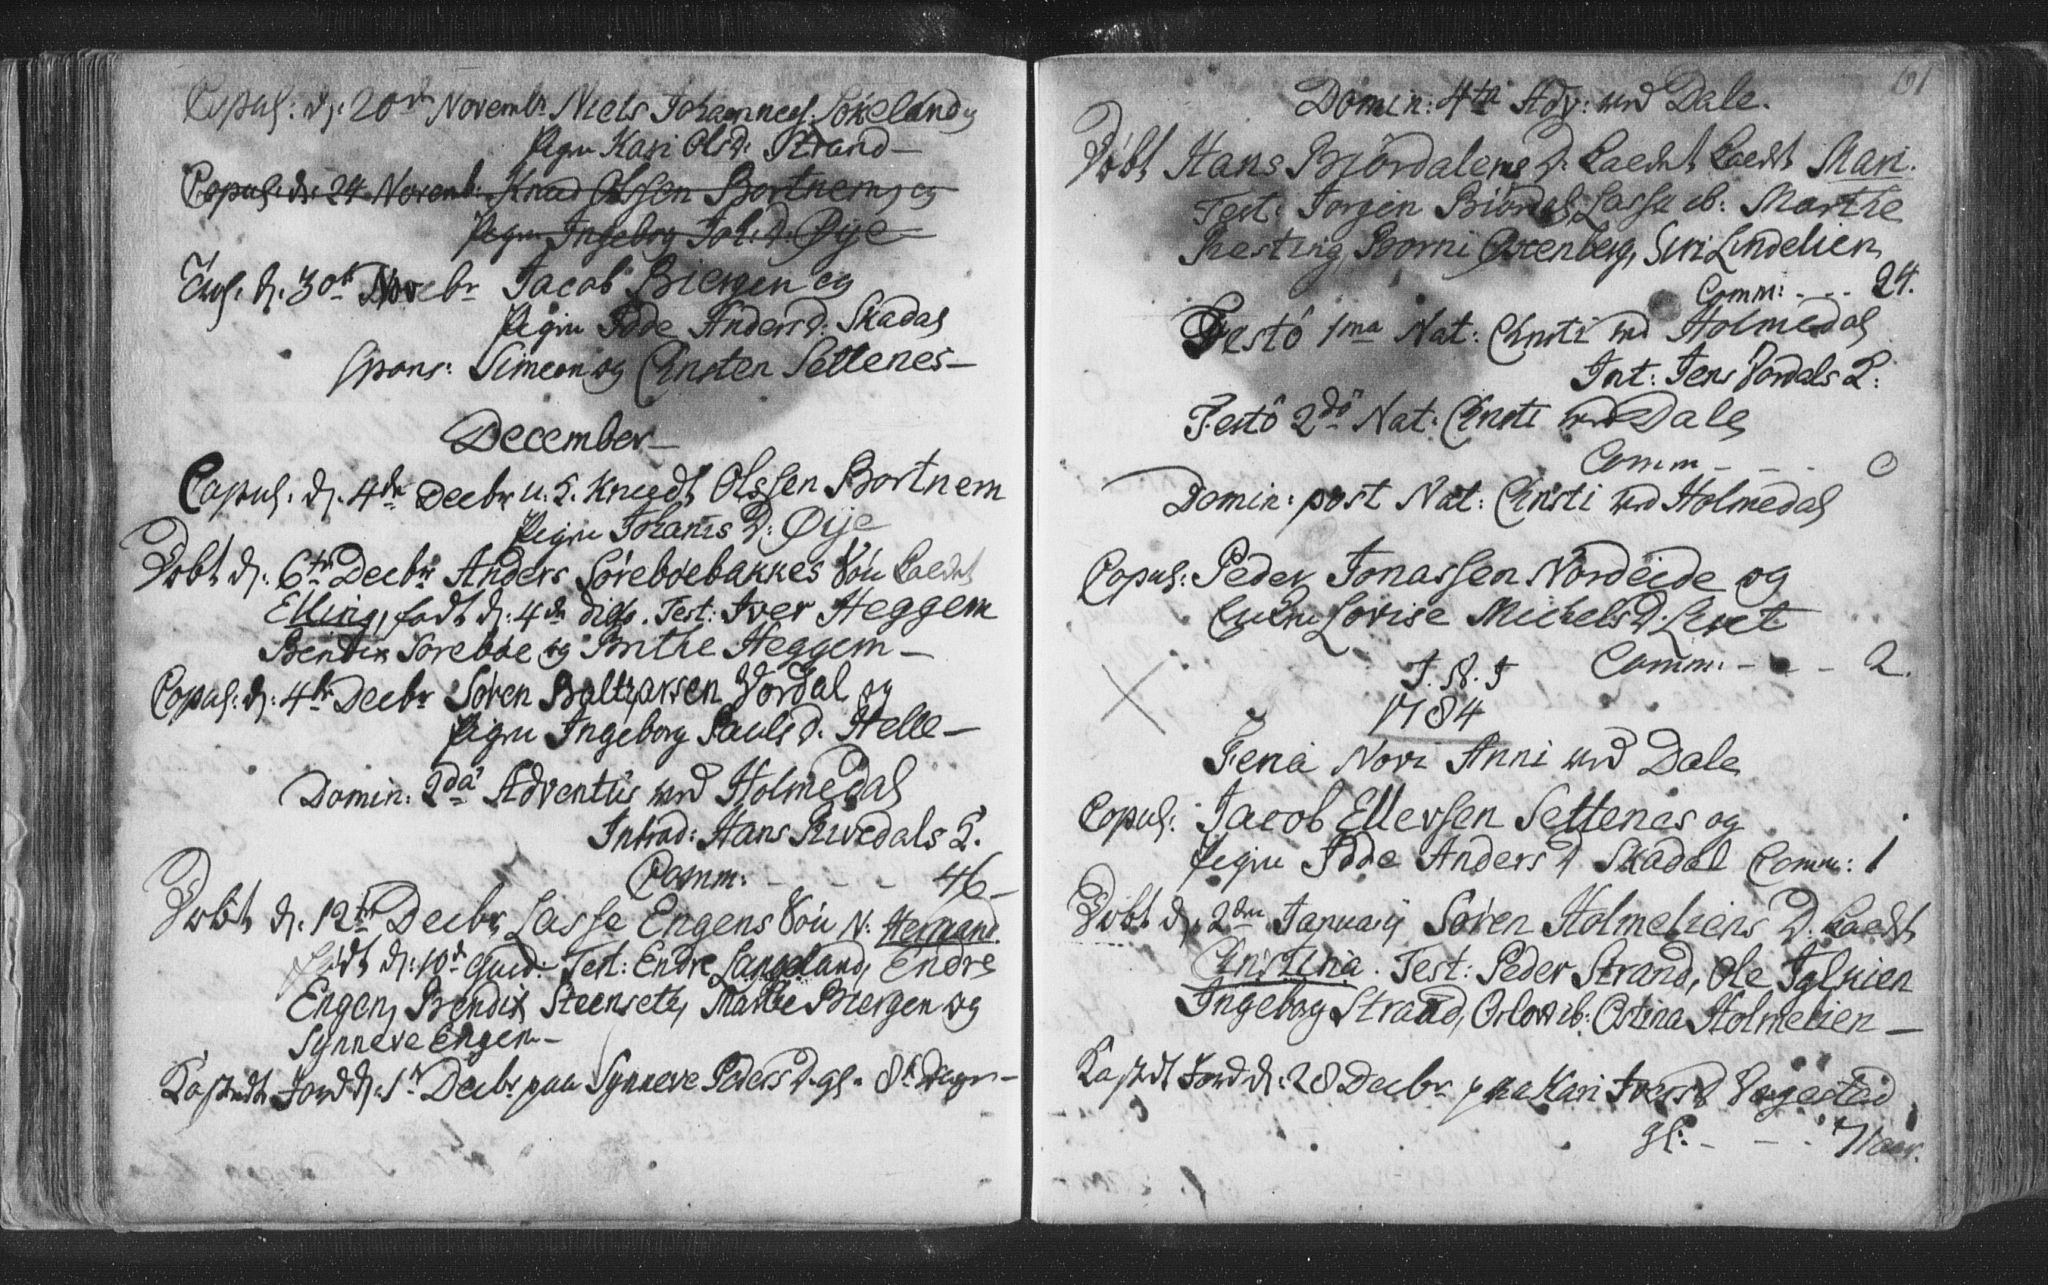 Copul: d: 20de Novembr Niels Johannes: Søkeland og
Pigen Kari Olsd: Strand
Copul: d: 24 Novemb: Knud Olssen Bortnem og
Pigen Ingeborg Joh: d: Øije
d. 30te Novebr Jacob Biergen og
Pigen Odde Andersd: Skadal
Spons: Simeon og Christen Settenes
December
Copul. d. 4de Decbr u. k. Knudt Olssen Bortnem
Pigen Johanis D: Øije
Døbt d: 6te Decbr Anders Sørebøebakkes Søn kaldet
Elling, født d: 4de dito. Test: Iver Heggem
Bendix Sørebøe og Brithe Heggem
Copul: d: 4de Decbr Søren Baltzarsen Vordal og
Pigen Ingeborg Pauls d. Helle
Domin: 2da Adventus ved Holmedal
Introd: Hans Rivedals K.
Comm: - - - 46
Døbt d: 12te Decbr Lasse Engens Søn N: Hermand
født d: 10de Test: Endre Langeland, Endre
Engen, Bendix Steensete, Marthe Biergen og
Synneve Engen
Kastedt Jord d: 1te Decbr paa Synneve Peders D. gl. 8te Dage
61
Domin: 4ta Adv: ved Dale.
Døbt Hans Biørdalens D: kaldet Mari.
Test: Jørgen Biørdal, Lasse ib: Marthe
Resting, Borni Siri Lindelien
Comm: - - - 24.
Festo 1ma Nat: Christi ved Holmedal
Int: Jens Vordals K:
Festo 2do Nat: Christi ved Dale
Comm - - - 0
Domin: post Nat: Christi ved Holmedal
Copul: Peder Jonassen Nordeide og
Lovise Michelsd:
Comm: - - - 2.
1784
Feria Novi Anni ved Dale
Copul: Jacob Ellevsen Settenes og
Pigen Odde Anders D Skadal Comm: 1
Døbt d: 2den January Søren Holmeliens D. kaldt
Christina. Test: Peder Strand, Ole
Ingeborg Strand, ib: Ostina Holmelien
Kastedt Jord d: 28 Decbr paa Kari Iversd
gl: - - - 7 Aar.